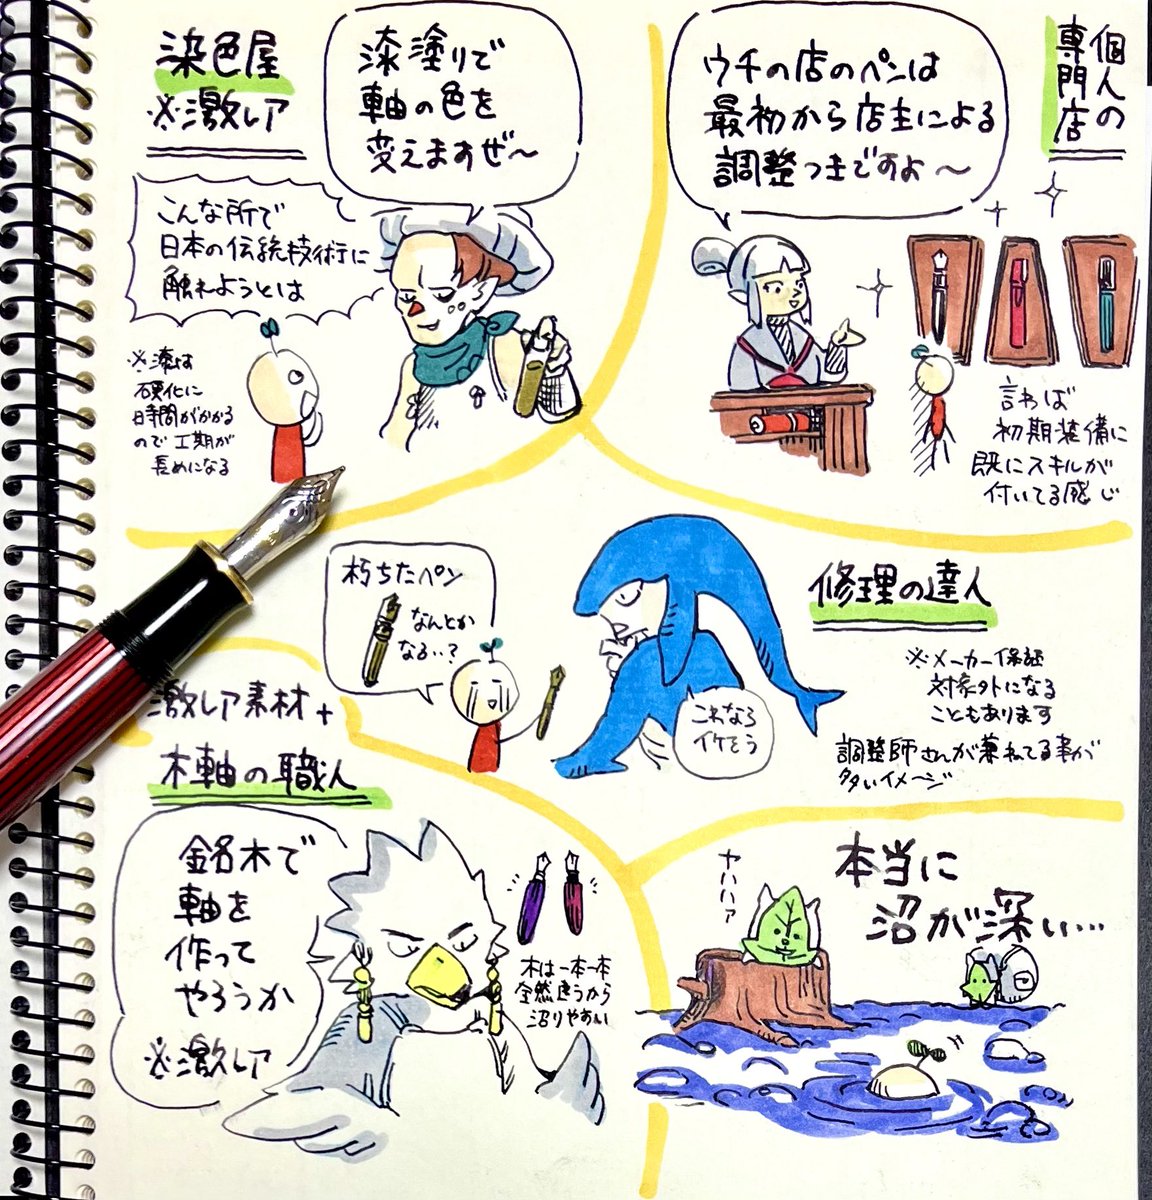 個人の
専門店
ウチの店のペンは
最初から店主による
調整つきですよ〜
言わば
初期装備に
既にスキルが
付いてる感じ
染色屋
※激レア
漆塗りで
軸の色を
変えますぜ〜
こんな所で
日本の伝統技術に
触れようとは
※漆は
硬化に
時間がかかる
ので工期が
長めになる
修理の達人
※メーカー保証
対象外になる
こともあります
調整師さんが兼ねてる事が
多いイメージ
朽ちたペン
なんとか
なる‥?
これなら
イケそう
激レア素材+
木軸の職人
銘木で
軸を
作って
やろうか
※激レア
木は一本一本
全然違うから
沼りやすい
本当に
沼が深い…
ヤハハァ